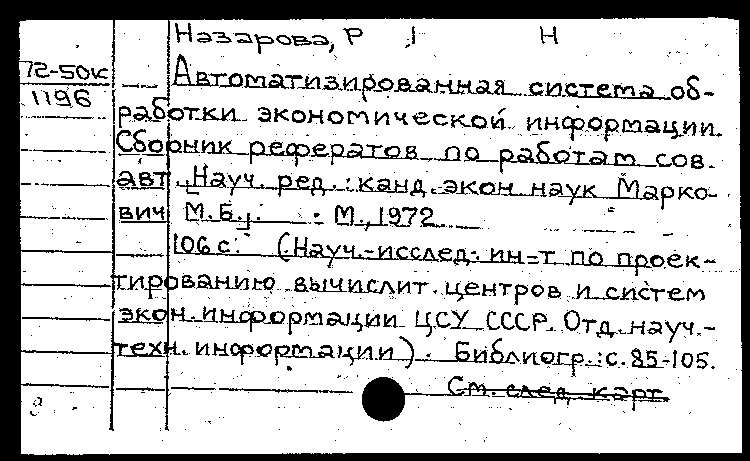 Назарова, Р I Н
72-50к
1196
Автоматизированная система об-
работки экономической информации.
Сборник рефератов по работам сов.
авт. Науч. ред.: канд. экон. наук Марко-
вич М.Б. М., 1972
106 с. (Науч.-исслед. ин-т по проек-
тированию вычислит. центров и систем
экон. информации ЦСУ СССР. Отд. науч.-
техн. информации). Библиогр.: с. 85-105.
См. след. карт.